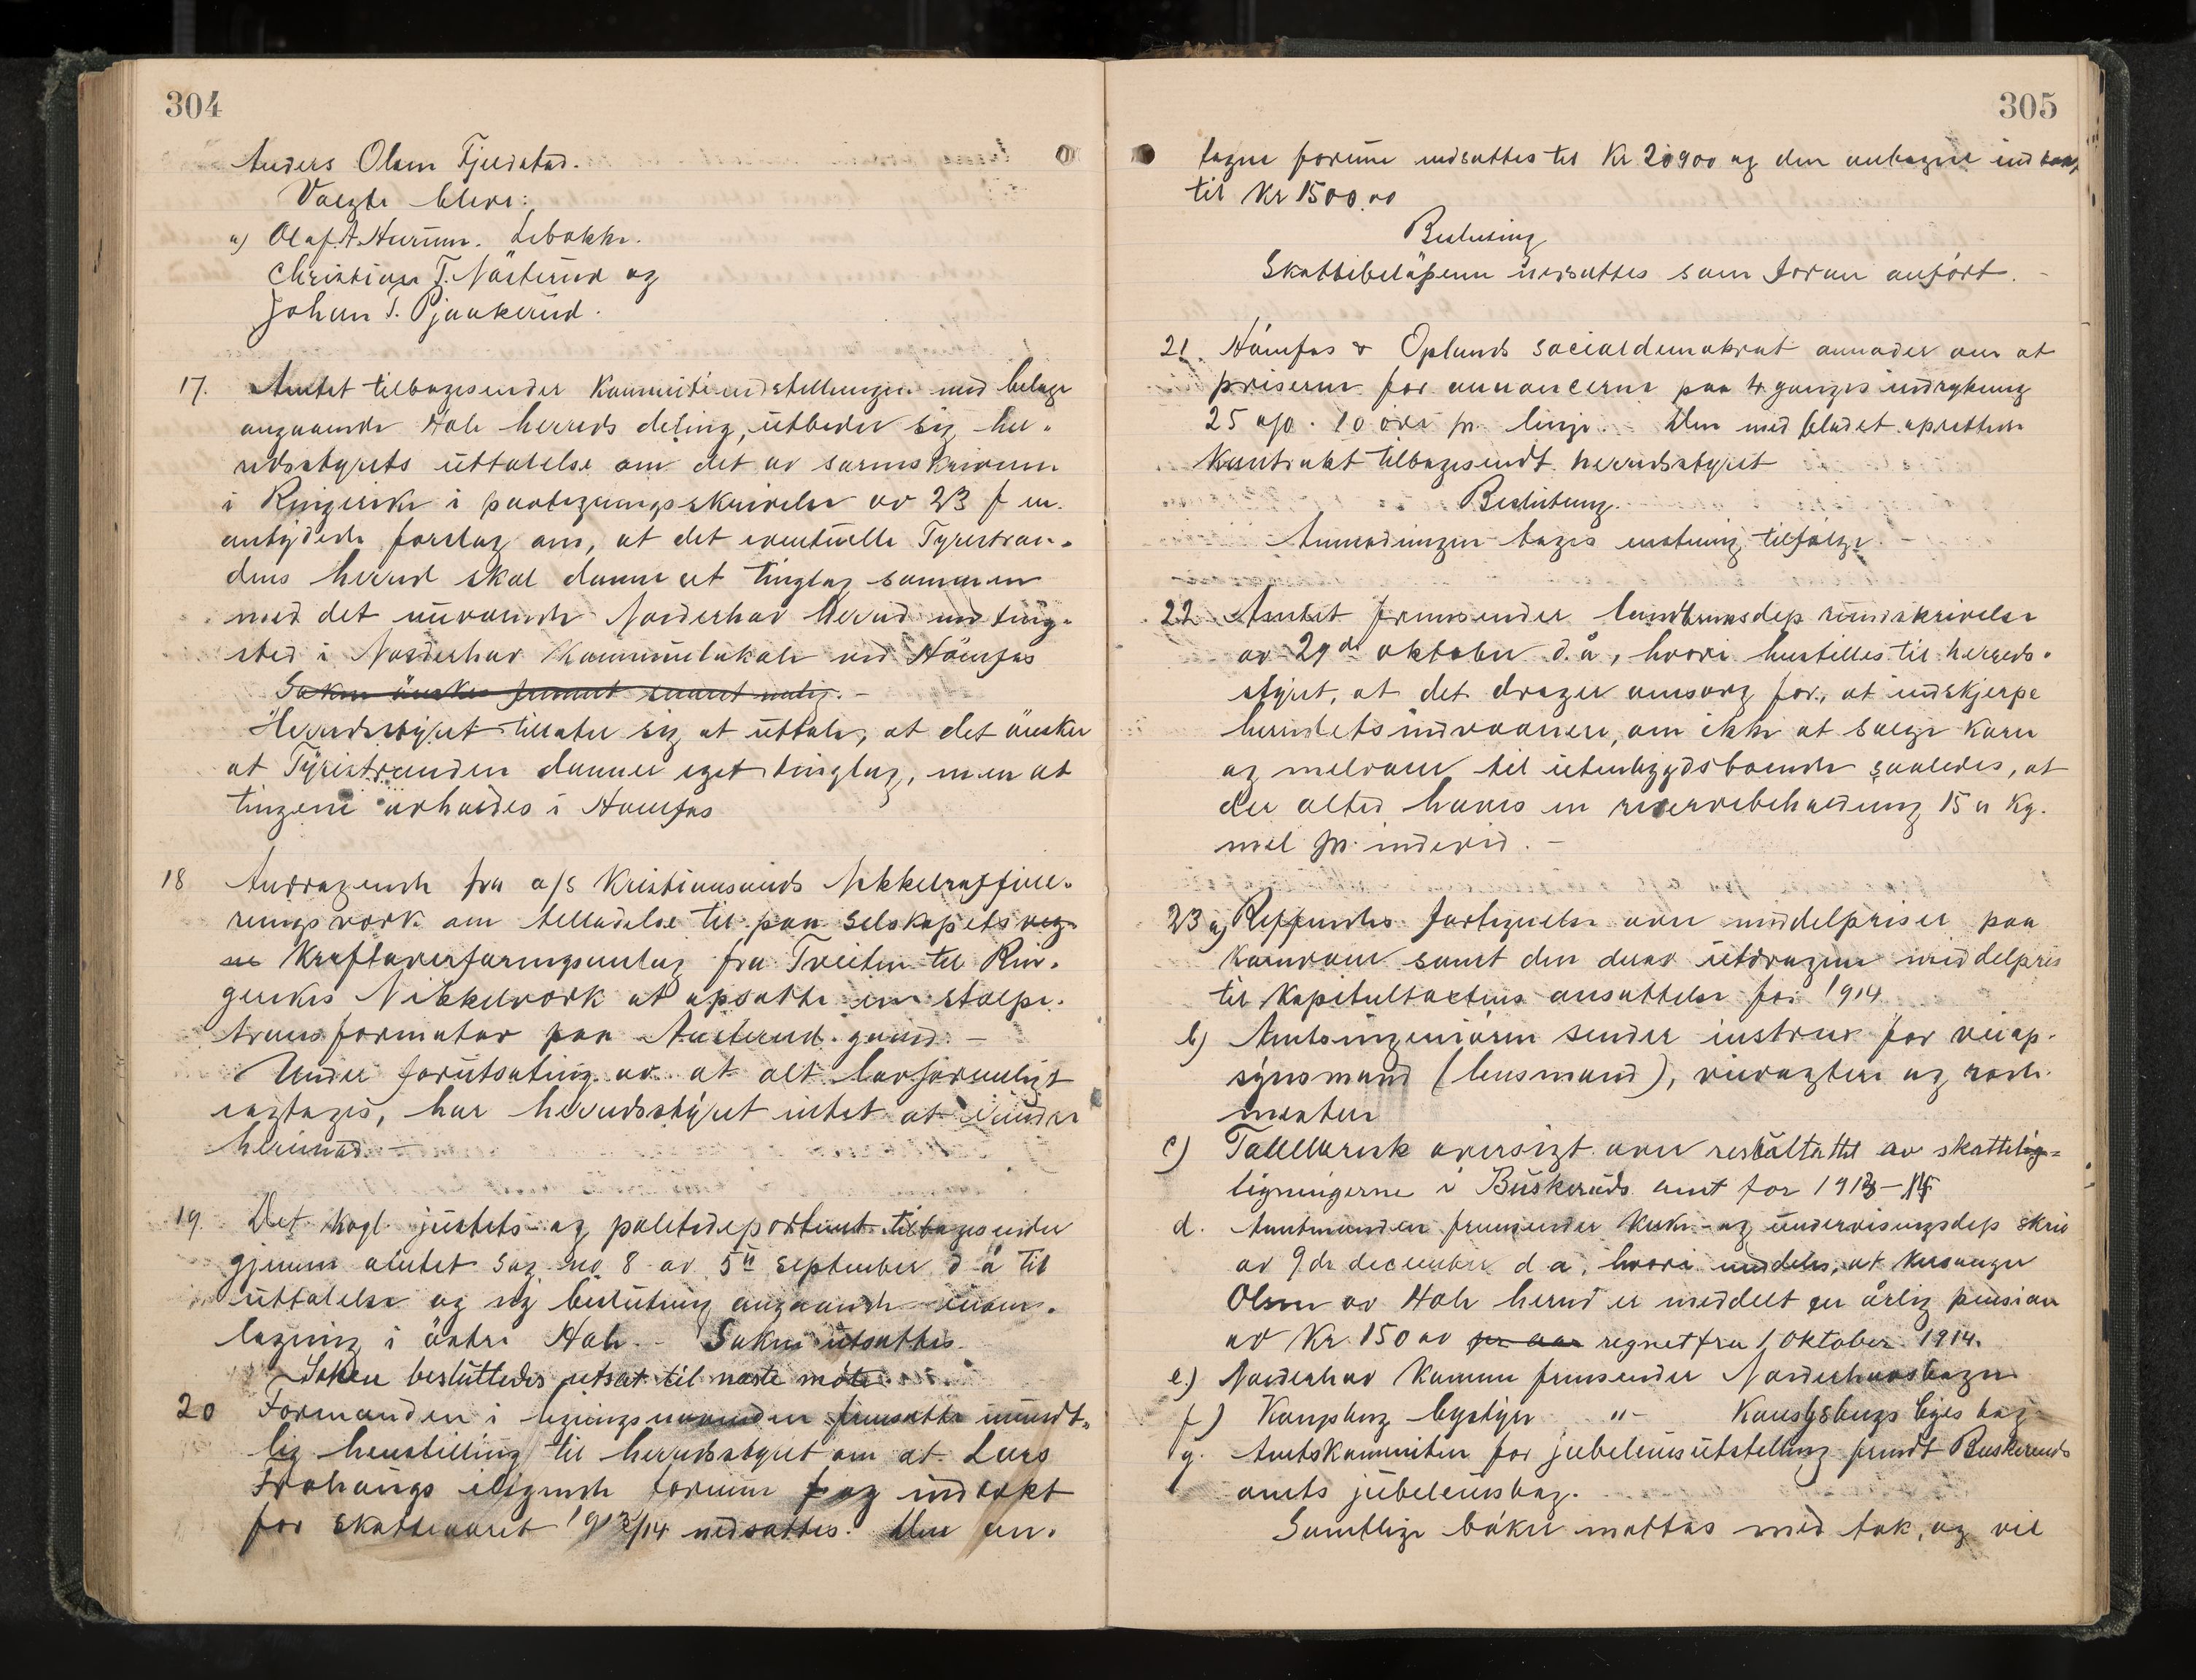 304
Anders Olsen Fjeldstad.
Valgte blev:
a) Olaf A. Hurum. Libakke.
Christian T. Nästerud og
Johan T. Pjaakerud.
17. Amtet tilbagesender Kommiteindstillingen med bilage
angaaende Hole herreds deling, utbeder sig her-
redsstyrets uttalelse om det av sorenskriveren
i Ringerike i paategningsskrivelse av 23 f m.
antydede forslag om, at det eventuelle Tyristran-
dens herred skal danne et tinglag sammen
med det nuværende Norderhov herred med ting-
sted i Norderhov Kommunelokale ved Hönefos
Saken önskes fremmet snarest mulig. -
Herredsstyret tillater sig at uttale, at det önsker
at Tyristranden danner eget tinglag, men at
tingene avholdes i Hönefos
18 Andragende fra a/s Kristianssands Nikkelraffine-
ringsverk om tilladelse til paa selskapets eg-
ne Kraftoverföringsanlæg fra Tveiten til Rin-
gerikes Nikkelverk at opsætte en stolpe-
transformator paa Aasterud. grund. -
Under forutsætning av at alt lovformeligt
iagtages, har herredsstyret intet at erindre
herimod. -
19. Det kogl. justits- og politidepartement tilbagesender
gjennem amtet sag no 8 av 5te september d å til
uttalelse og ny beslutning angaaende
lægning i östre Hole. - Saken utsættes.
Saken besluttedes utsat til næste möte.
20 Formanden i ligningsnævnden fremsatte mundt-
lig henstilling til herredsstyret om at Lars
Frohaugs lignede formue og indtækt
for skatteaaret 1913/14 nedsættes. Den an-
305
tagne formue nedsættes til Kr 20900 og den antagne indtækt
til Kr 1500.00
Beslutning
Skattebelöpene nedsættes som foran anfört. -
21. Hönefos & Oplands socialdemokrat anmoder om at
priserne for annoncerne paa 4 ganges indrykning
25 öre. 10 öre pr linje. Den med bladet oprettede
Kontrakt tilbagesendt herredsstyret
Beslutning.
Anmodningen tages enstemmig tilfölge. -
22 Amtet fremsender landbruksdep rundskrivelse
av 29de oktober d. å, hvori henstilles til herreds-
styret, at det drager omsorg for, at indskjerpe
herredets indvaanere, om ikke at sælge korn
og melvarer til utenbygdsboende saaledes, at
der altid haves en reservebeholdning 15 a Kg.
mel pr. individ. -
23 a) Refereredes fortegnelse over middelpriser paa
kornvarer samt den derav utdragne middelpris
til Kapitelstakstens ansættelse for 1914
b) Amtsingeniören sender instrux for veiop-
synsmænd (lensmænd), veivogtere og rode-
mestere
c) Tabellarisk oversigt over resultatet av skattelig-
ligningerne i Buskeruds amt for 1913-14
d. Amtmanden fremsender Kirke- og undervisningsdep skriv
av 9de december d a, hvori meddeles, at kirkesanger
Olsen av Hole herred er meddelt en årlig pension
av Kr. 150 av pr aar regnet fra 1 oktober 1914.
e.) Norderhov Kommune fremsender Norderhovsbogen
f) Kongsberg bystyre " - Kongsbergs byes bog
g. Amtskommiteen for jubileumsutstilling sendt Buskeruds
amts jubileumsbog.
Samtlige böker mottas med tak, og vil